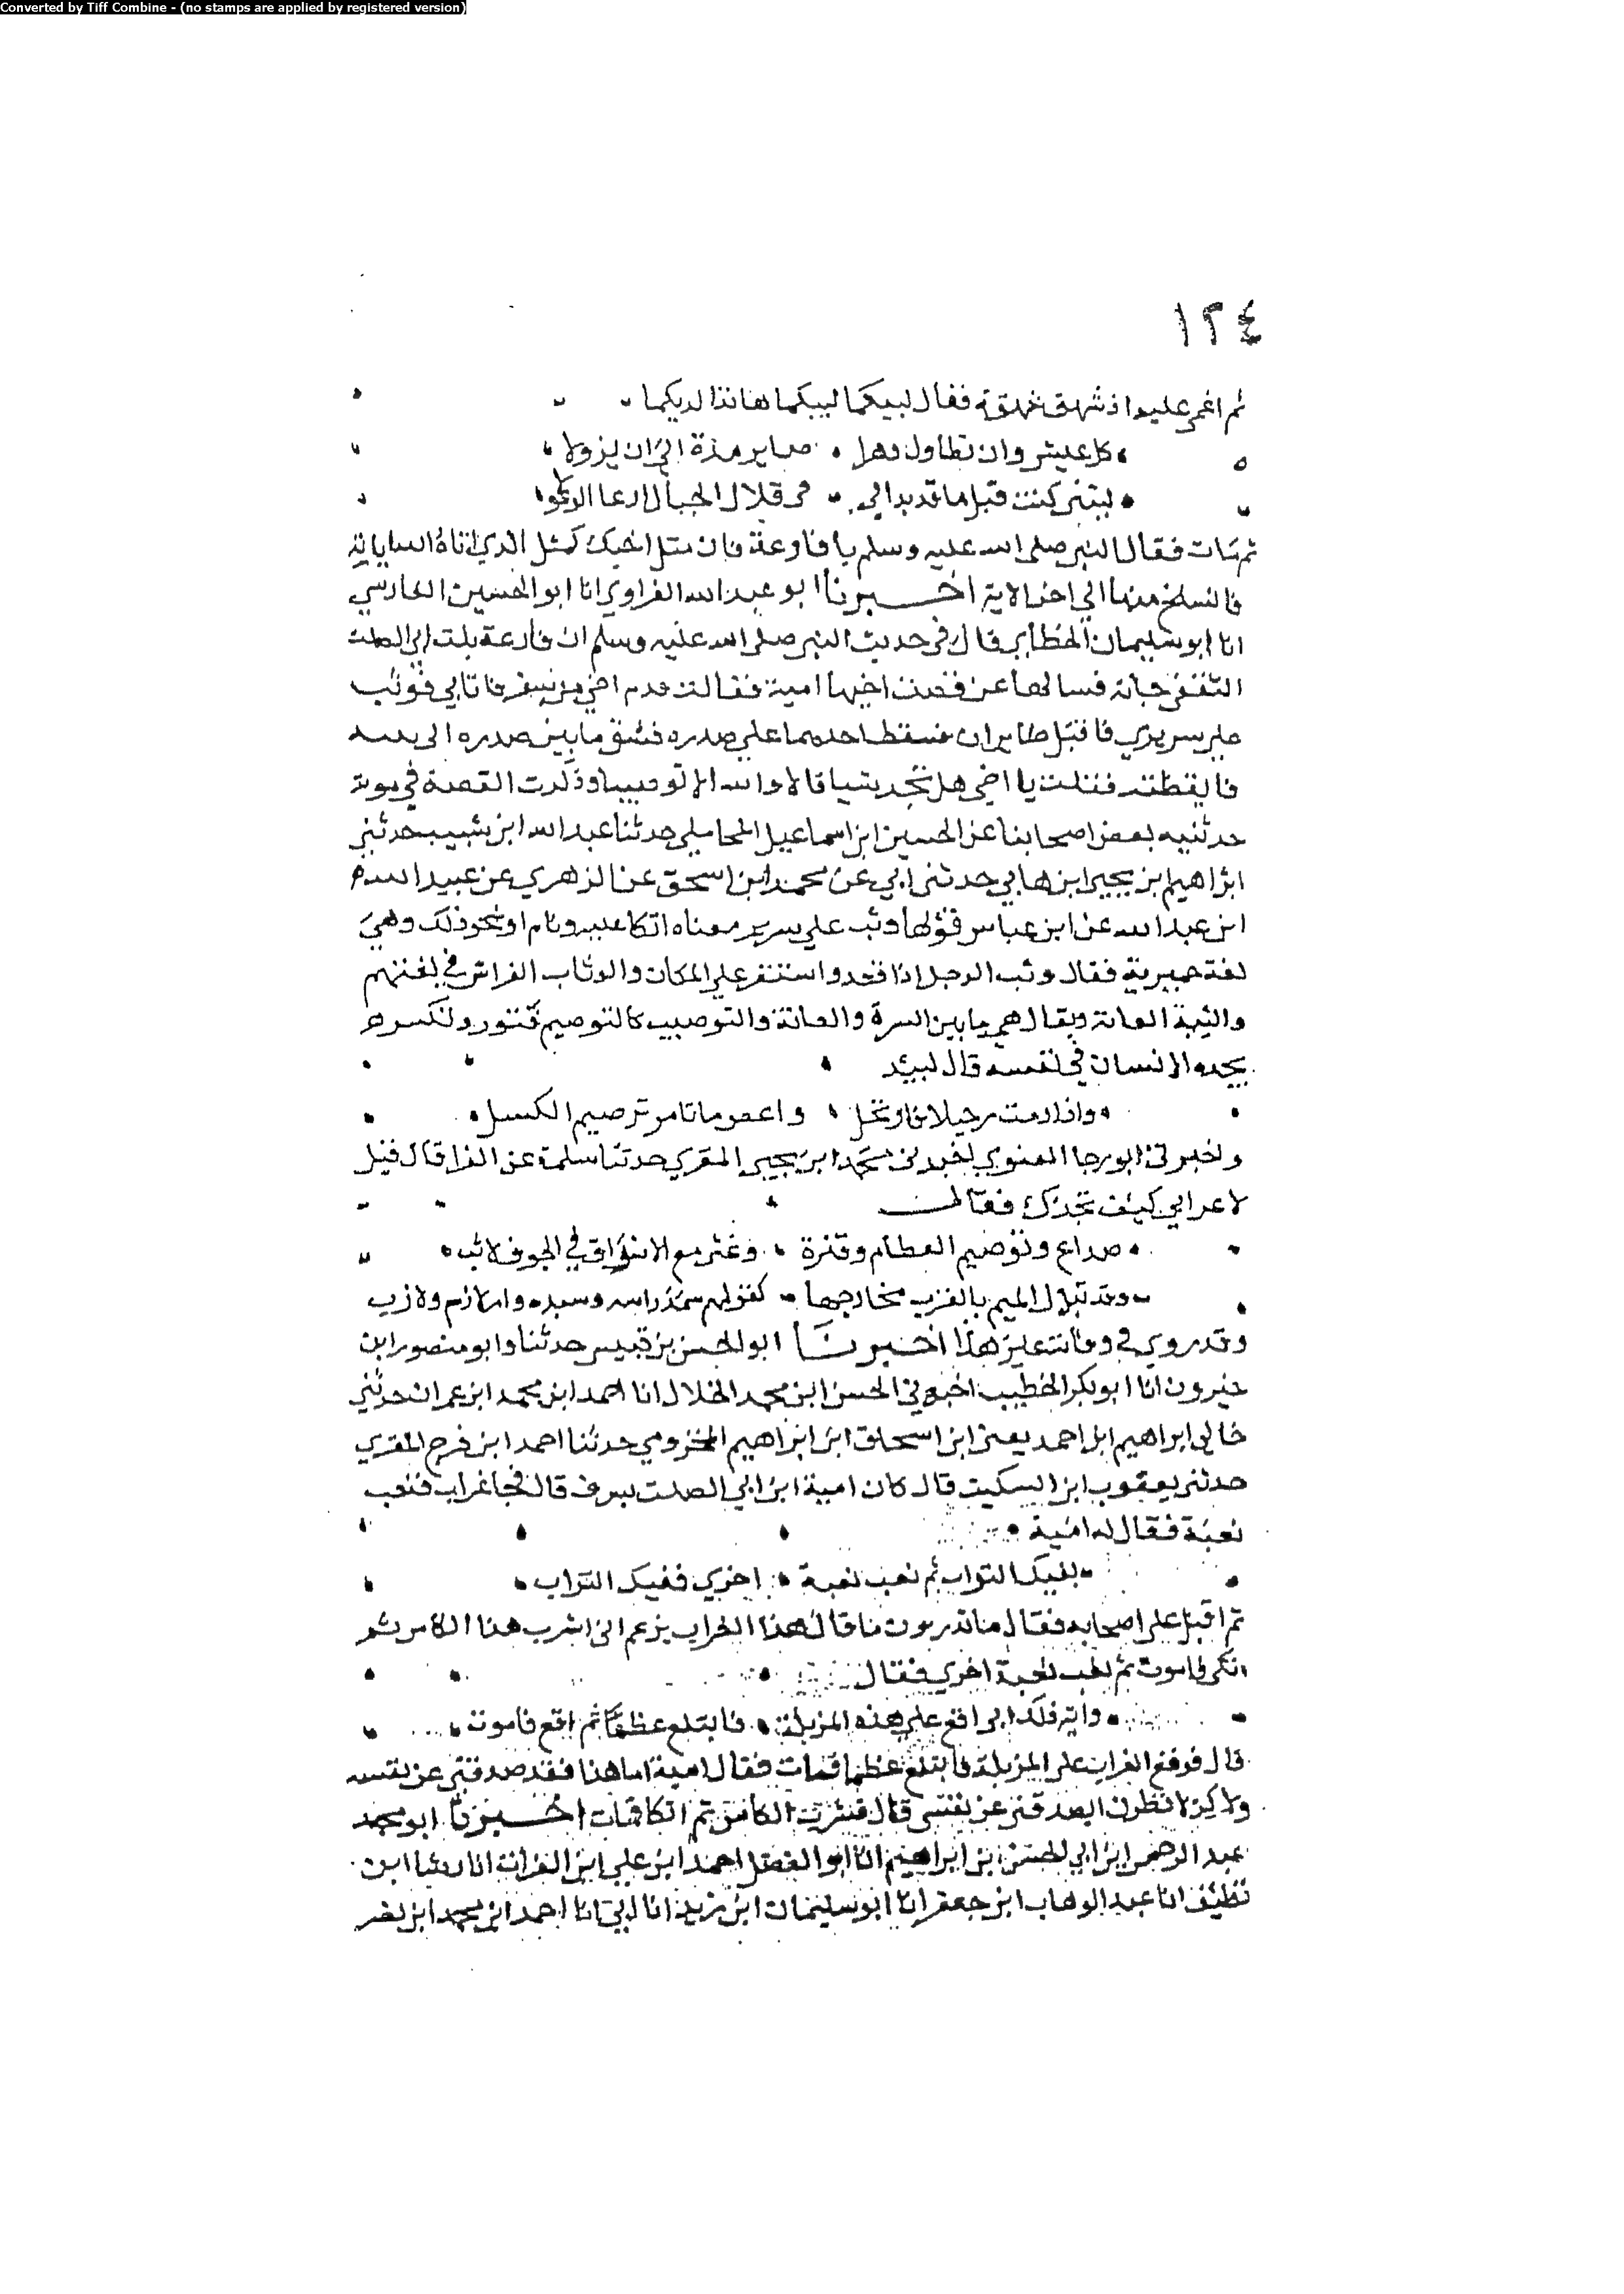 Converted by Tiff Combine - (no stamps are applied by registered version)
١٢٤
ثم اغمي عليه اذ شهق شهقة فقال لبيكما لبيكما هانذا لديكما
كل عيش وان تطاول دهرا صاير مرة الي ان يزولا
ليتني كنت قبل ما قد بدا لي في قلال الجبال ارعا الوعولا
ثم مات فقال النبي صلى الله عليه وسلم يا فارعة فان مثل اخيك كمثل الذي اتاه الله اياته
فانسلخ منها الي اخر الاية اخــبرنا ابو عبد الله الفراوي انا ابو الحسين الفارسي
انا ابو سليمان الخطابي قال في حديث النبي صلى الله عليه وسلم ان فارعة بنت ابي الصلت
الثقفي جاته فسالها عن قصة اخيها امية فقالت قدم اخي من سفر فاتاني فوثب
علي سريري فاقبل طايران فسقط احدهما علي صدره فشق ما بين صدره الى
فايقظته فقلت يا اخي هل تجد شيا قال لا والله الا توصيبا وذكرت القصة في موته
حدثنيه بعض اصحابنا عن الحسين ابن اسماعيل المحاملي حدثنا عبد الله ابن شبيب حدثني
ابراهيم ابن يحيى ابن هاني حدثني ابي عن محمد ابن اسحق عن الزهري عن عبيد الله
ابن عبد الله عن ابن عباس قولها وثب علي سرير معناه اتكا عليه ونام او نحو ذلك وهي
لغة حميرية فقال وثب الرجل اذا قعد واستقر علي المكان والوثاب الفراش في لغتهم
والثبة العانة ويقال هي ما بين السرة والعانة والتوصيب كالتوصيم فتور وتكسر
يجده الانسان في نفسه قال لبيد
واذا رمت رحيلا فارتحل واعص ما تامر توصيم الكسل
واخبرني ابو رجا الغنوي اخبرني محمد ابن يحيى المقري حدثنا سلمة عن الفرا قال قيل
لاعرابي كيف تجدك فقالــت
صداع وتوصيم العظام وفترة وغثي مع الاشراق في الجوف لاتب
وقد تبدل الميم بالقرب مخارجها كقولهم سمد راسه وسبده وامر لازم ولازب
وقد روي في وفاته غير هذا اخــبرنــا ابو الحسن بن قبيس حدثنا وابو منصور ابن
خيرون انا ابو بكر الخطيب اخبرني الحسن ابن محمد الخلال انا احمد ابن محمد ابن عمران حدثني
خالي ابراهيم ابن احمد يعني ابن اسحاق ابن ابراهيم المخزومي حدثنا احمد ابن فرج المقري
حدثني يعقوب ابن السكيت قال كان امية ابن ابي الصلت يشرب قال فجا غراب فنعب
نعبة فقال له امية
بفيك التراب ثم نعب نعبة اخري ففيك التراب
ثم اقبل علي اصحابه فقال ما تدرون ما قال هذا الغراب يزعم اني اشرب هذا الكاس ثم
اتكي فاموت ثم نعب نعبة اخري فقال
واية ذلك اني اقع علي هذه المزبلة فابتلع عظما ثم اقع فاموت
قال فوقع الغراب علي المزبلة فابتلع عظما فمات فقال امية اما هذا فقد صدقني عن نفسه
ولاكن لانظرن ايصدقني عن نفسي قال فشرب الكاس ثم اتكا فمات اخــبرنا ابو محمد
عبد الرحمن ابن ابي الحسن ابن ابراهيم انا ابو الفضل احمد ابن علي ابن الفرات انا رشا ابن
نظيف انا عبد الوهاب ابن جعفر انا ابو سليمان ابن زبر انا ابي انا احمد ابن محمد ابن نصر